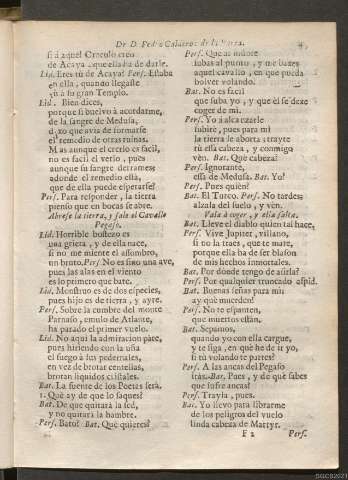 De D. Pedro Calderon de la Barca.
si à aquel Oraculo creo
de Acaya, que ella ha de darle.
Lid. Eres tù de Acaya? Pers. Estaba
en ella, quando llegaste
tù à su gran Templo.
Lid. Bien dices,
porque si buelvo à acordarme,
de la sangre de Medusa,
dixo que avia de formarse
el remedio de otras ruinas.
Mas aunque el creerlo es facil,
no es facil el verlo, pues
aunque su sangre derrames,
adonde el remedio està,
que de ella puede esperarse?
Pers. Para responder, la tierra
pienso que en bocas se abre.
Abrese la tierra, y sale el Cavallo
Pegaso.
Lid. Horrible bostezo es
una grieta, y de ella nace,
si no me miente el assombro,
un bruto. Pers. No es sino una ave,
pues las alas en el viento
es lo primero que bate.
Lid. Monstruo es de dos especies,
pues hijo es de tierra, y ayre.
Pers. Sobre la cumbre del monte
Parnaso, emulo de Atlante,
ha parado el primer vuelo.
Lid. No aqui la admiracion pàre,
pues hiriendo con la uña
el fuego à sus pedernales,
en vez de brotar centellas,
brotan liquidos cristales.
Bat. La fuente de los Poetas serà.
Què ay de que lo saques?
Bat. De que quitarà la sed,
y no quitarà la hambre.
Pers. Bato? Bat. Què quieres?
Pers. Que al instante
subas al punto, y me traxes
aquel cavallo, en que pueda
bolver volando.
Bat. No es facil
que suba yo, y que èl se dexe
coger de mi.
Pers. Yo à alcanzarle
subirè, pues para mi
la tierra se aborta; trayte
tù essa cabeza, y conmigo
vèn. Bat. Què cabeza?
Pers. Ignorante,
essa de Medusa. Bat. Yo?
Pers. Pues quièn?
Bat. El Turco. Pers. No tardes;
alzala del suelo, y vèn.
Vala à coger, y ella salta.
Bat. Lleve el diablo quien tal hace,
Pers. Vive Jupiter, villano,
si no la traes, que te mate,
porque ella ha de ser blason
de mis hechos inmortales.
Bat. Por dònde tengo de asirla?
Pers. Por qualquier truncado aspid.
Bat. Buenas señas para mi:
ay què muerden!
Pers. No te espanten,
que muertos estàn.
Bat. Sepamos,
quando yo con ella cargue,
y te siga, en què he de ir yo,
si tù volando te partes?
Pers. A las ancas del Pegaso
iràs. Bat. Pues, y de què sabes
que sufre ancas?
Pers. Trayla, pues.
Bat. Yo llevo para librarme
de los peligros del vuelo
linda cabeza de Martyr.
F 2 Pers.